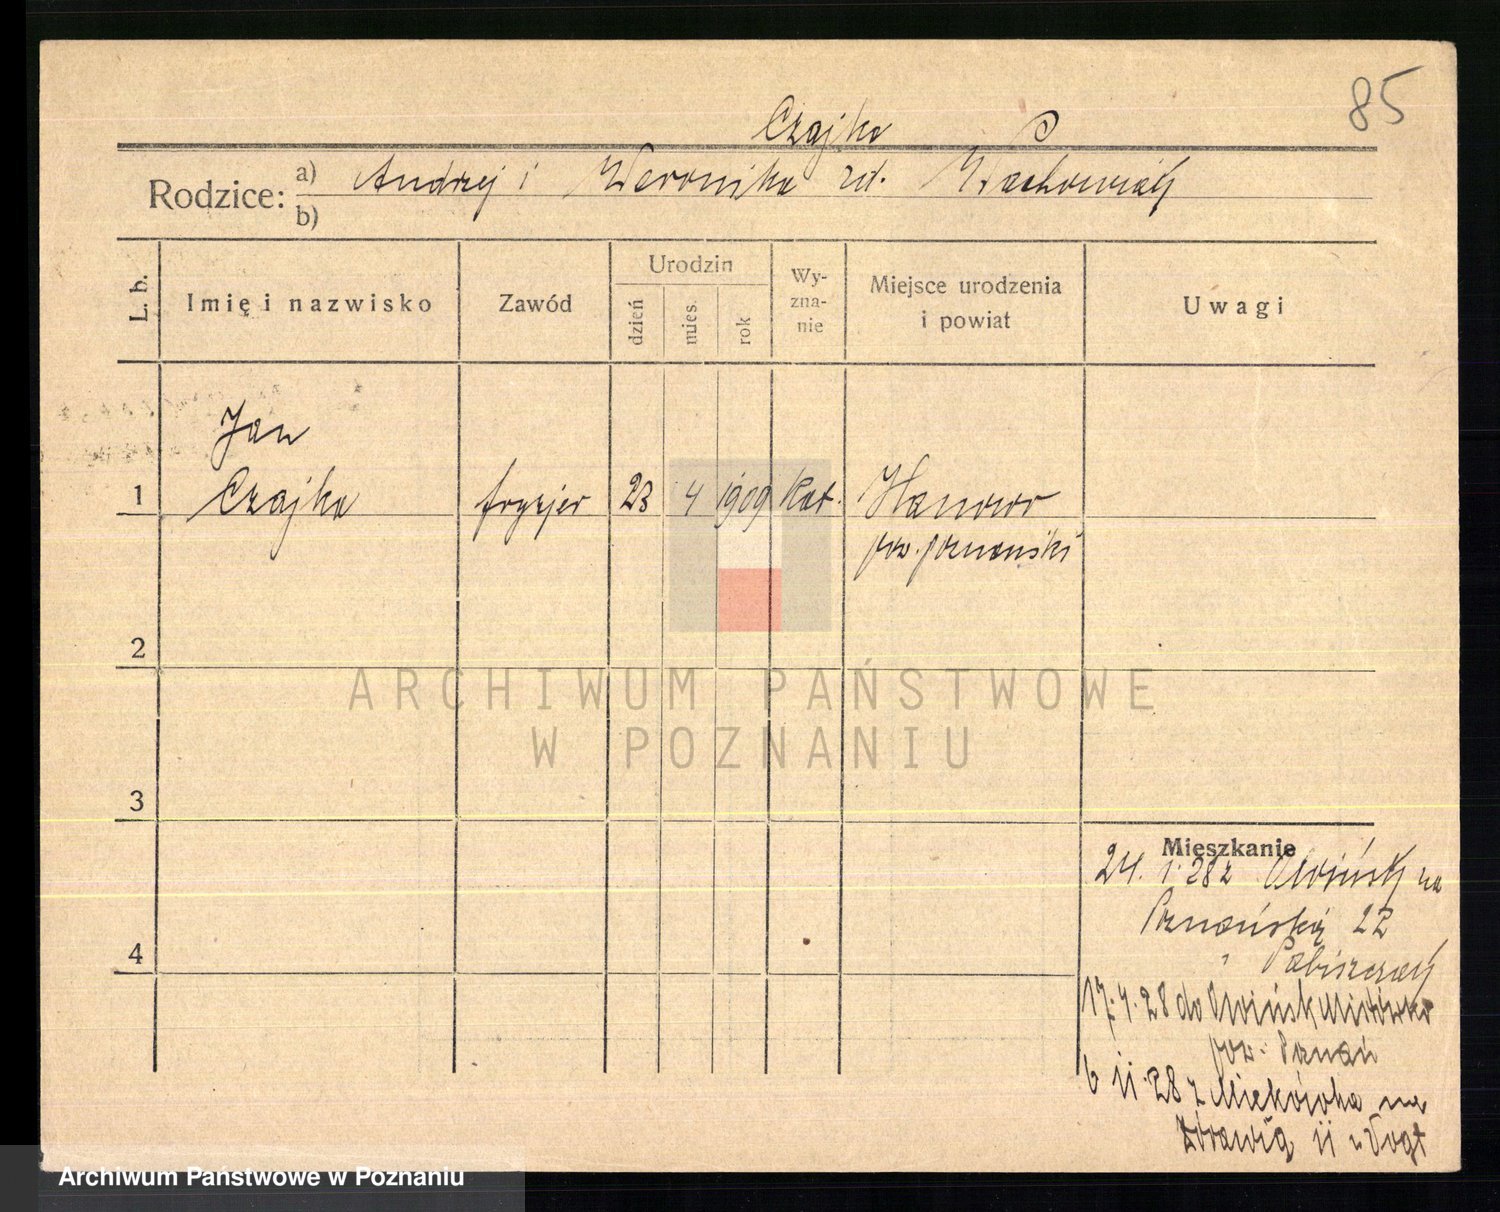 85
Czajka
Rodzice: a) Andrzej i Weronika zd. Wachowiak
b)
L. b. Imię i nazwisko Zawód Urodzin dzień mies. rok Wy-zna-nie Miejsce urodzenia i powiat Uwagi
Jan
1 Czajka fryzjer 23 4 1909 kat. Hanower
pow. poznański
2
ARCHIWUM PAŃSTWOWE
W POZNANIU
3
Mieszkanie
24. 1. 28 z Owińsk na
Poznańską 22
4
17. 4. 28 do Owińsk
pow. Poznań
6 11. 28 z na
11 Vogt
Archiwum Państwowe w Poznaniu